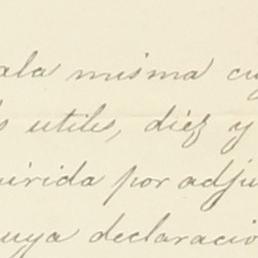 ala misma cu
s utiles, diez y
uirida por adju
uya declaracio